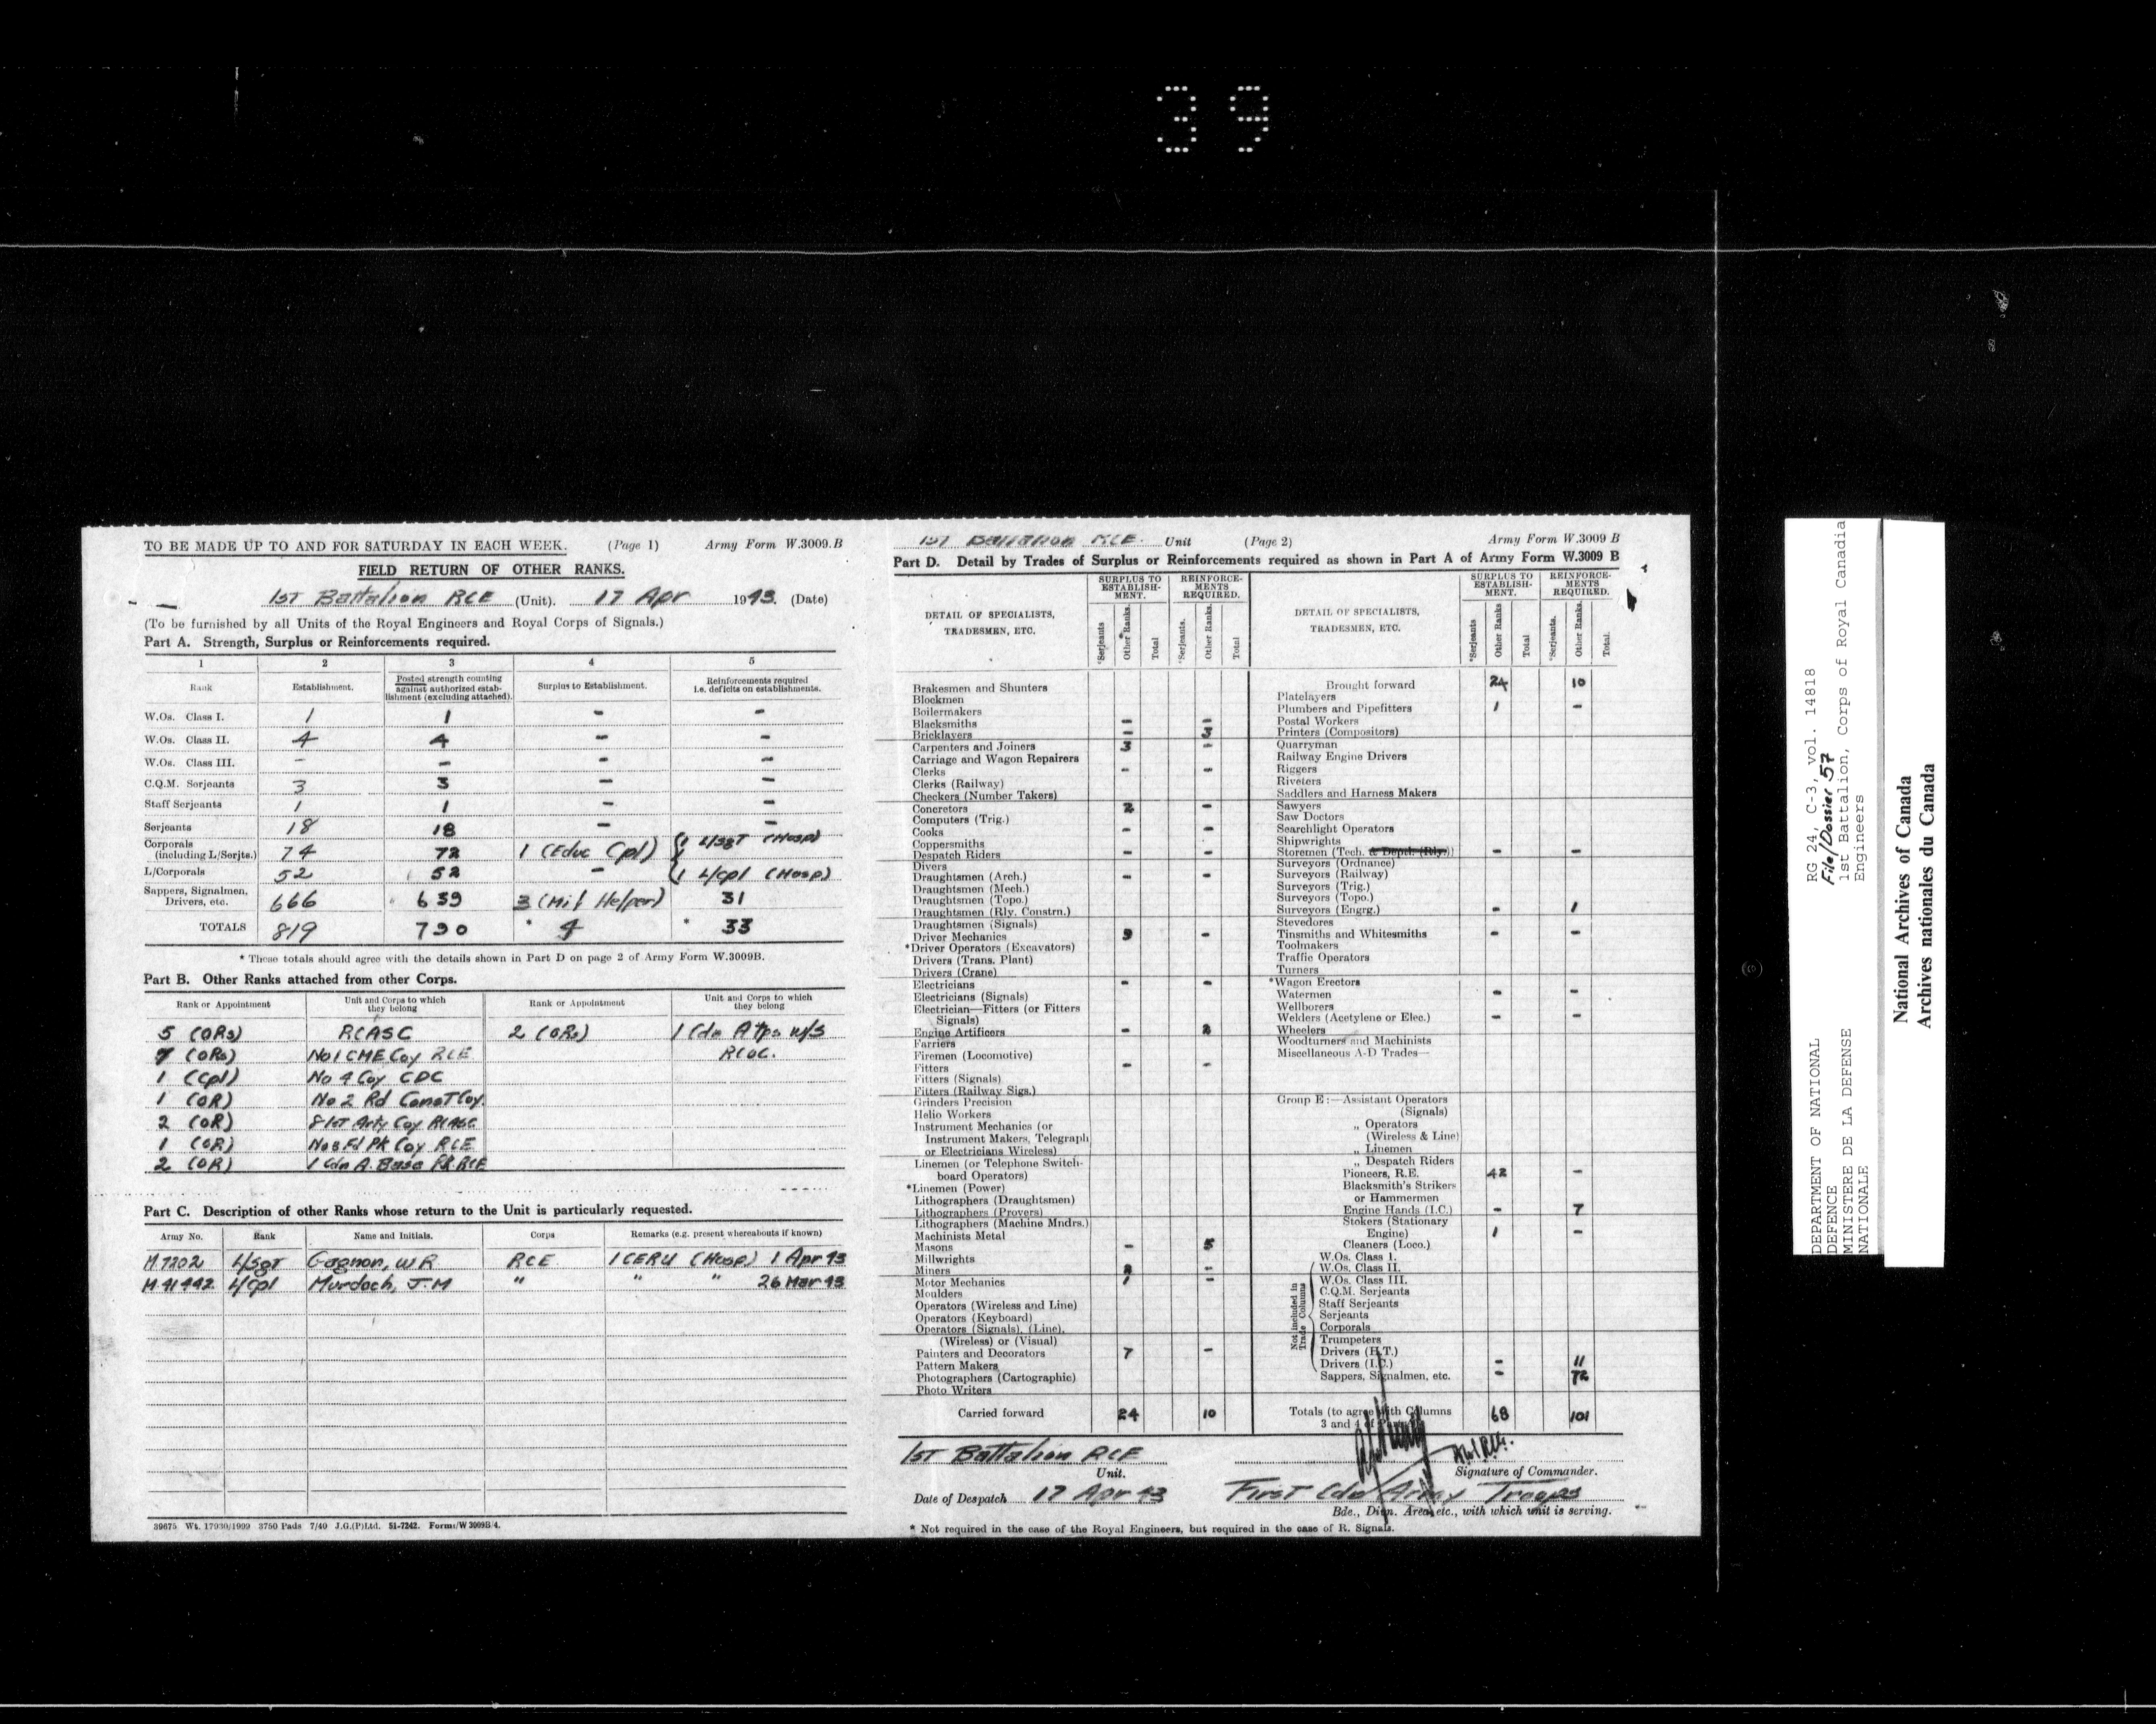 39
TO BE MADE UP TO AND FOR SATURDAY IN EACH WEEK. (Page 1) Army Form W.3009.B
FIELD RETURN OF OTHER RANKS.
1ST Battalion RCE (Unit). 17 Apr 1943. (Date)
(To be furnished by all Units of the Royal Engineers and Royal Corps of Signals.)
Part A. Strength, Surplus or Reinforcements required.
1 2 3 4 5
Rank Establishment. Posted strength counting against authorized establishment (excluding attached). Surplus to Establishment. Reinforcements required i.e. deficits on establishments.
W.Os. Class I. 1 1 - -
W.Os. Class II. 4 4 - -
W.Os. Class III. - - - -
C.Q.M. Serjeants 3 3 - -
Staff Serjeants 1 1 - -
Serjeants 18 18 - -
Corporals (including L/Serjts.) 74 72 1 (Educ Cpl) 1 L/Sgt (Hosp)
L/Corporals 52 52 - 1 L/Cpl (Hosp)
Sappers, Signalmen, Drivers, etc. 666 639 3 (Mil Helper) 31
TOTALS 819 790 * 4 * 33
* These totals should agree with the details shown in Part D on page 2 of Army Form W.3009B.
Part B. Other Ranks attached from other Corps.
Rank or Appointment Unit and Corps to which they belong Rank or Appointment Unit and Corps to which they belong
5 (ORs) RCASC 2 (ORs) 1 Cdn A Tps W/S
7 (ORs) No 1 CME Coy RCE RCOC.
1 (Cpl) No 4 Coy CDC
1 (OR) No 2 Rd Const Coy.
2 (OR) 81st Arty Coy RCASC
1 (OR) No 8 Fd Pk Coy RCE
2 (OR) 1 Cdn A. Base Pk RCE
Part C. Description of other Ranks whose return to the Unit is particularly requested.
Army No. Rank Name and Initials. Corps Remarks (e.g. present whereabouts if known)
M7202 L/Sgt Gagnon, WR RCE 1 CERU (Hosp) 1 Apr 43
M41442 L/Cpl Murdoch, J.M " " " 26 Mar 43
39675 Wt. 17930/1999 3750 Pads 7/40 J.G.(P)Ltd. 51-7242. Forms/W 3009B/4.
1ST Battalion RCE. Unit (Page 2) Army Form W.3009 B
Part D. Detail by Trades of Surplus or Reinforcements required as shown in Part A of Army Form W.3009 B
DETAIL OF SPECIALISTS, TRADESMEN, ETC. SURPLUS TO ESTABLISHMENT. REINFORCEMENTS REQUIRED.
*Serjeants Other Ranks. Total *Serjeants. Other Ranks. Total
Brakesmen and Shunters
Blockmen
Boilermakers
Blacksmiths - -
Bricklayers - 3
Carpenters and Joiners 3 -
Carriage and Wagon Repairers
Clerks - -
Clerks (Railway)
Checkers (Number Takers)
Concretors 2 -
Computers (Trig.)
Cooks - -
Coppersmiths
Despatch Riders - -
Divers
Draughtsmen (Arch.) - -
Draughtsmen (Mech.)
Draughtsmen (Topo.)
Draughtsmen (Rly. Constrn.)
Draughtsmen (Signals)
Driver Mechanics 9 -
*Driver Operators (Excavators)
Drivers (Trans. Plant)
Drivers (Crane)
Electricians - -
Electricians (Signals)
Electrician—Fitters (or Fitters Signals)
Engine Artificers - 2
Farriers
Firemen (Locomotive)
Fitters - -
Fitters (Signals)
Fitters (Railway Sigs.)
Grinders Precision
Helio Workers
Instrument Mechanics (or
Instrument Makers, Telegraph
or Electricians Wireless)
Linemen (or Telephone Switch-
board Operators)
*Linemen (Power)
Lithographers (Draughtsmen)
Lithographers (Provers)
Lithographers (Machine Mndrs.)
Machinists Metal
Masons - 5
Millwrights
Miners 2 -
Motor Mechanics 1 -
Moulders
Operators (Wireless and Line)
Operators (Keyboard)
Operators (Signals), (Line),
(Wireless) or (Visual)
Painters and Decorators 7 -
Pattern Makers
Photographers (Cartographic)
Photo Writers
Carried forward 24 10
DETAIL OF SPECIALISTS, TRADESMEN, ETC. SURPLUS TO ESTABLISHMENT. REINFORCEMENTS REQUIRED.
*Serjeants Other Ranks Total *Serjeants. Other Ranks. Total.
Brought forward 24 10
Platelayers
Plumbers and Pipefitters 1 -
Postal Workers
Printers (Compositors)
Quarryman
Railway Engine Drivers
Riggers
Riveters
Saddlers and Harness Makers
Sawyers
Saw Doctors
Searchlight Operators
Shipwrights
Storemen (Tech. & Depts. (Rly.)) - -
Surveyors (Ordnance)
Surveyors (Railway)
Surveyors (Trig.)
Surveyors (Topo.)
Surveyors (Engrg.) - 1
Stevedores
Tinsmiths and Whitesmiths - -
Toolmakers
Traffic Operators
Turners
*Wagon Erectors
Watermen - -
Wellborers
Welders (Acetylene or Elec.) - -
Wheelers
Woodturners and Machinists
Miscellaneous A-D Trades—
Group E:—Assistant Operators
(Signals)
„ Operators
(Wireless & Line)
„ Linemen
„ Despatch Riders
Pioneers, R.E. 42 -
Blacksmith's Strikers
or Hammermen
Engine Hands (I.C.) - 7
Stokers (Stationary
Engine) 1 -
Cleaners (Loco.)
Not included in Trade Columns
W.Os. Class I.
W.Os. Class II.
W.Os. Class III.
C.Q.M. Serjeants
Staff Serjeants
Serjeants
Corporals
Trumpeters
Drivers (H.T.)
Drivers (I.C.) - 11
Sappers, Signalmen, etc. - 72
Totals (to agree with Columns 68 101
3 and 4 of
1ST Battalion RCE
Unit. Signature of Commander.
Date of Despatch 17 Apr 43 First Cdn Army Troops
Bde., Divn. Area, etc., with which unit is serving.
* Not required in the case of the Royal Engineers, but required in the case of R. Signals.
DEPARTMENT OF NATIONAL DEFENCE
MINISTERE DE LA DEFENSE NATIONALE
RG 24, C-3, vol. 14818
File/Dossier 57
1st Battalion, Corps of Royal Canadia
Engineers
National Archives of Canada
Archives nationales du Canada